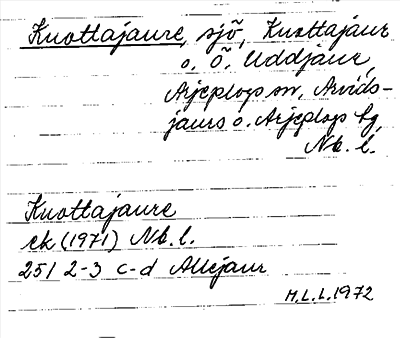 Knottajaure, sjö, Knottajaur
o. Ö. Uddjaur,
Arjeplogs sn, Arvids-
jaurs o. Arjeplogs tg,
Nb. l.
Knottajaure
ek (1971) Nb. l.
25I 2-3 c-d Allejaur
H.L.L. 1972